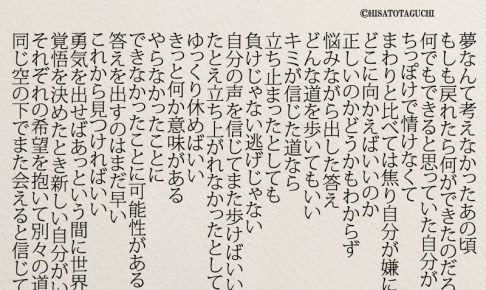 ©HISATOTAGUCHI
夢なんて考えなかったあの頃
もしも戻れたら何ができたのだろ
何でもできると思っていた自分が
ちっぽけで情けなくて
まわりと比べては焦り自分が嫌に
どこに向かえばいいのか
正しいのかどうかもわからず
悩みながら出した答え
どんな道を歩いてもいい
キミが信じた道なら
立ち止まったとしても
負けじゃない逃げじゃない
自分の声を信じてまた歩けばいい
たとえ立ち上がれなかったとして
ゆっくり休めばいい
きっと何か意味がある
やらなかったことに
できなかったことに可能性がある
答えを出すのはまだ早い
これから見つければいい
勇気を出せばあっという間に世界
覚悟を決めたとき新しい自分がい
それぞれの希望を抱いて別々の道
同じ空の下でまた会えると信じて